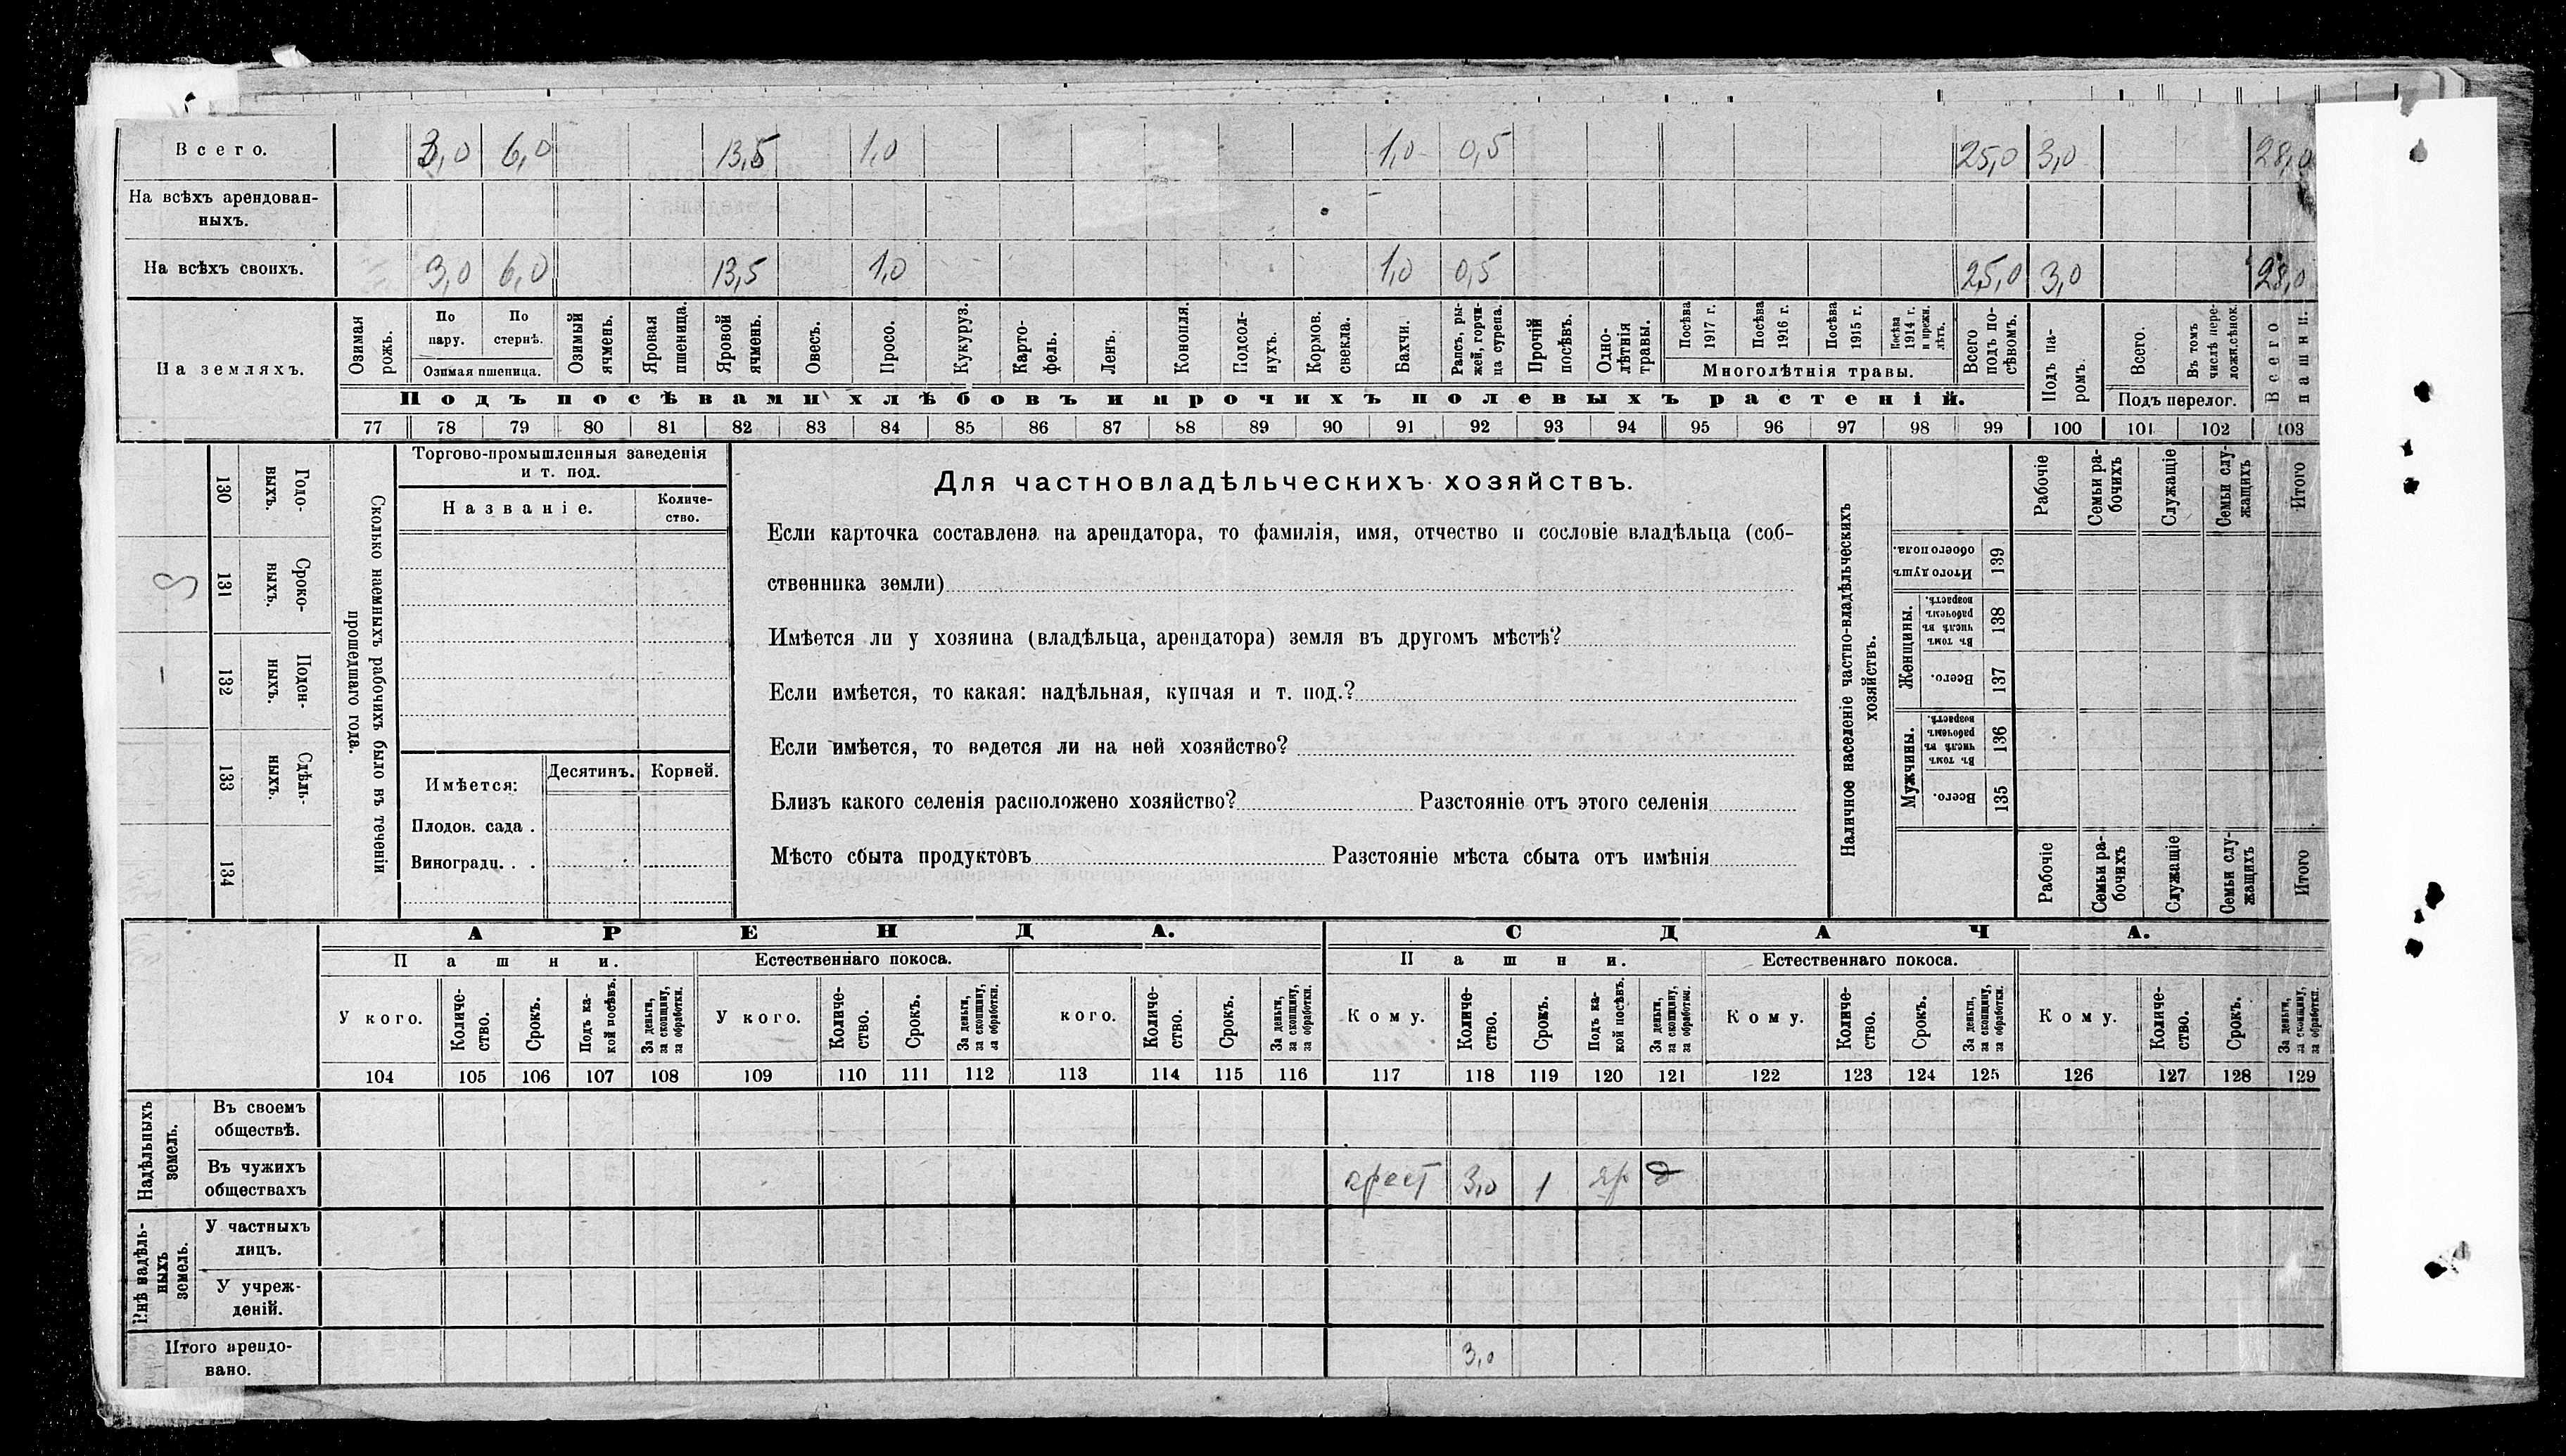 Всего. 3,0 6,0 13,5 1,0 1,0 0,5 25,0 3,0 28,0
На всѣхъ арендован-
ныхъ.
На всѣхъ своихъ. 3,0 6,0 13,5 1,0 1,0 0,5 25,0 3,0 28,0
На земляхъ.
Озимая рожь.
По пару.
По стернѣ.
Озимая пшеница.
Озимый ячмень.
Яровая пшеница.
Яровой ячмень.
Овесъ.
Просо.
Кукуруз.
Карто-
фель.
Ленъ.
Конопля.
Подсол-
нухъ.
Кормов. свекла.
Бахчи.
Рапсъ, ры-
жей, горчи-
ца сурепа.
Прочій посѣвъ.
Одно-
лѣтнія травы.
Посѣва 1917 г.
Посѣва 1916 г.
Посѣва 1915 г.
Посѣва 1914 г. и прежн. лѣтъ.
Многолѣтнія травы.
Всего подъ по-
сѣвомъ.
Подъ па-
ромъ.
Всего.
Въ томъ числѣ пере-
ложн.сѣнок.
Подъ перелог.
Всего пашни.
Подъ посѣвами хлѣбовъ и прочихъ полевыхъ растеній.
77 78 79 80 81 82 83 84 85 86 87 88 89 90 91 92 93 94 95 96 97 98 99 100 101 102 103
Сколько наемныхъ рабочихъ было въ теченіи
прошедшаго года.
Годо-
выхъ.
130
Сроко-
выхъ.
131
Поден-
ныхъ.
132
Сдѣль-
ныхъ.
133
134
Торгово-промышленныя заведенія
и т. под.
Названіе.
Количе-
ство.
Имѣется:
Десятинъ. Корней.
Плодов. сада .
Виноградн. . .
Для частновладѣльческихъ хозяйствъ.
Если карточка составлена на арендатора, то фамилія, имя, отчество и сословіе владѣльца (соб-
ственника земли)
Имѣется ли у хозяина (владѣльца, арендатора) земля въ другомъ мѣстѣ?
Если имѣется, то какая: надѣльная, купчая и т. под.?
Если имѣется, то ведется ли на ней хозяйство?
Близъ какого селенія расположено хозяйство? Разстояніе отъ этого селенія
Мѣсто сбыта продуктовъ Разстояніе мѣста сбыта отъ имѣнія
Наличное населеніе частно-владѣльческихъ
хозяйствъ.
Рабочіе
Семьи ра-
бочихъ
Служащіе
Семьи слу-
жащихъ
Итого
Итого душъ
обоего пола.
139
Женщины.
Въ томъ числѣ въ рабочемъ возрастѣ.
138
Всего.
137
Мужчины.
Въ томъ числѣ въ рабочемъ возрастѣ.
136
Всего.
135
Рабочіе
Семьи ра-
бочихъ
Служащіе
Семьи слу-
жащихъ
Итого
АРЕНДА. СДАЧА.
Пашни. Естественнаго покоса. Пашни. Естественнаго покоса.
У кого.
Количе-
ство.
Срокъ.
Подъ ка-
кой посѣвъ.
За деньги,
за скопщину,
за обработки.
У кого.
Количе-
ство.
Срокъ.
За деньги,
за скопщину,
за обработки.
кого.
Количе-
ство.
Срокъ.
За деньги,
за скопщину,
за обработки.
Кому.
Количе-
ство.
Срокъ.
Подъ ка-
кой посѣвъ.
За деньги,
за скопщину,
за обработки.
Кому.
Количе-
ство.
Срокъ.
За деньги,
за скопщину,
за обработки.
Кому.
Количе-
ство.
Срокъ.
За деньги,
за скопщину,
за обработки.
104 105 106 107 108 109 110 111 112 113 114 115 116 117 118 119 120 121 122 123 124 125 126 127 128 129
Надѣльныхъ
земель.
Въ своемъ
обществѣ.
Въ чужихъ
обществахъ
крест 3,0 1 яр д
Внѣ надѣль-
ныхъ
земель.
У частныхъ
лицъ.
У учреж-
деній.
Итого арендо-
вано.
3,0